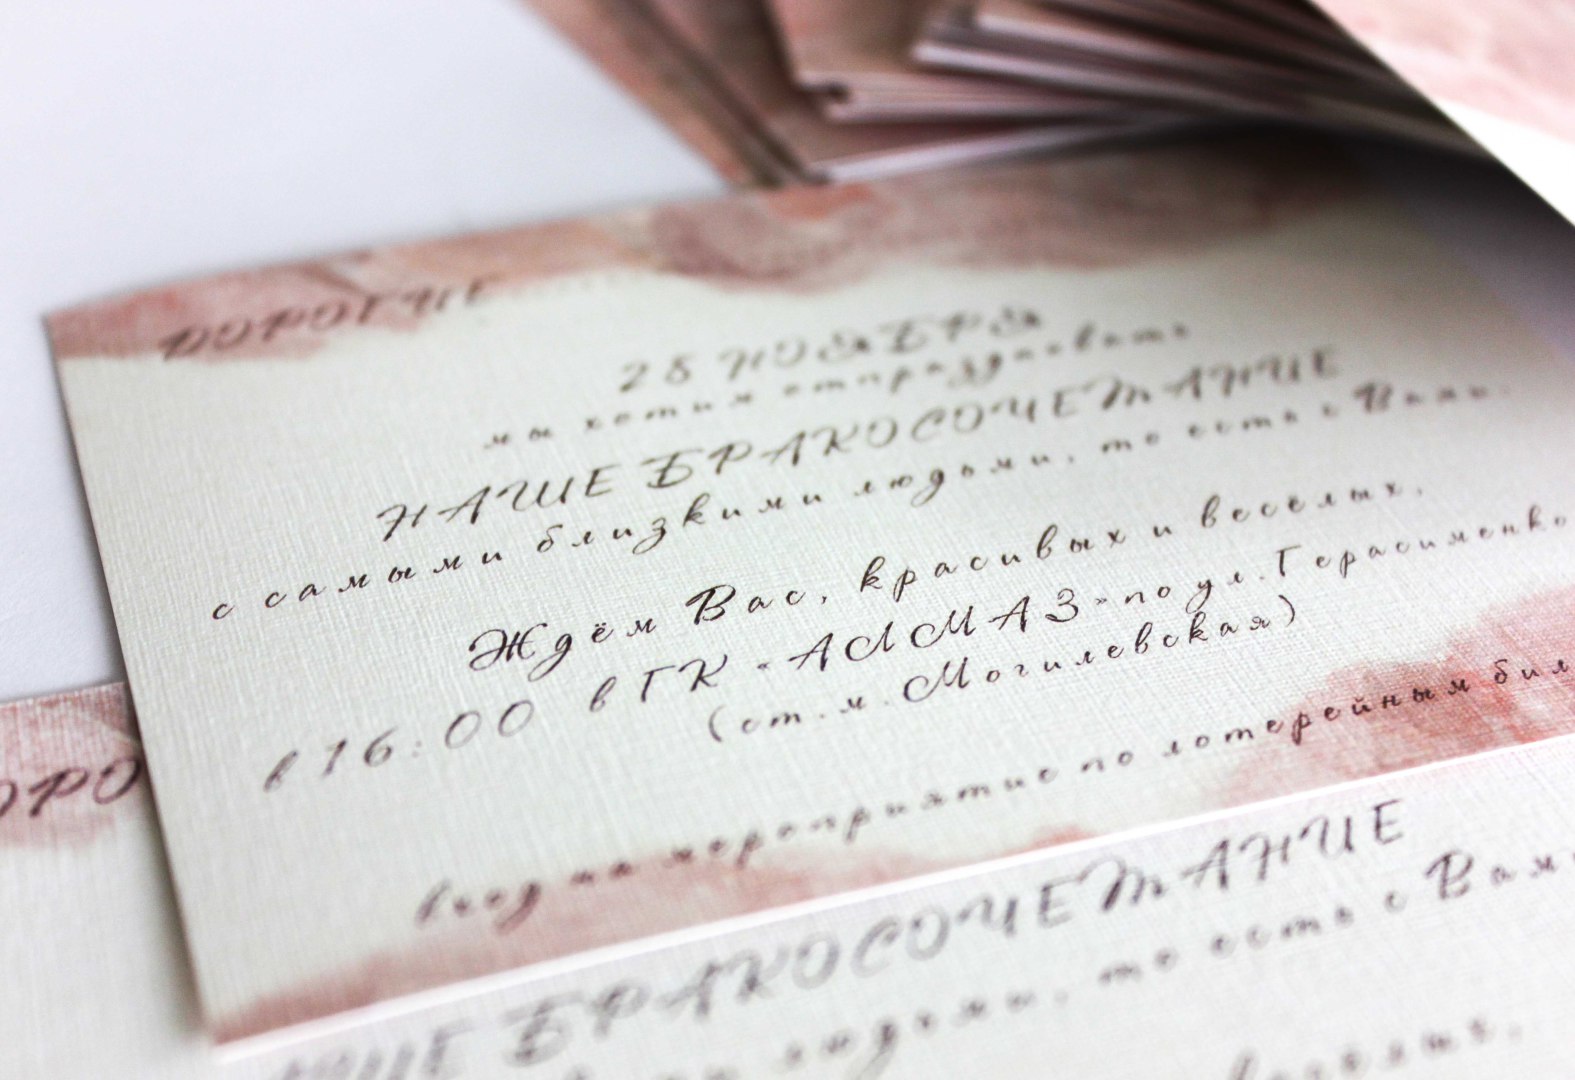 ДОРОГИЕ
28 НОЯБРЯ
мы хотим отпраздновать
НАШЕ БРАКОСОЧЕТАНИЕ
с самыми близкими людьми, то есть с Вами.
Ждём Вас, красивых и весёлых,
в 16:00 в ГК «АЛМАЗ» по ул. Герасименко
(ст. м. Могилевская)
вход на мероприятие по лотерейным бил
ОРО
НАШЕ БРАКОСОЧЕТАНИЕ
людьми, то есть с Вами
весёлых,